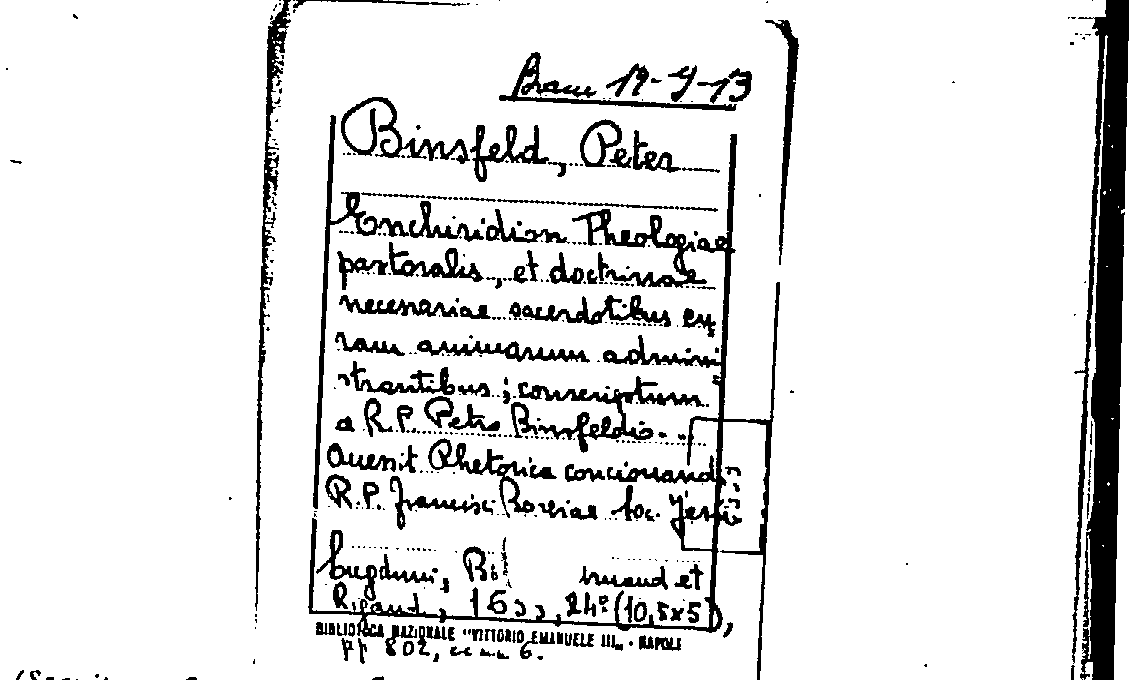 Branc 19-J-13
Binsfeld, Peter
Enchiridion Theologiae
pastoralis, et doctrinae
necessariae sacerdotibus cu,
ram animarum admini"
strantibus; conscriptum
a R.P. Petro Binsfeldio...
Acuenit Rhetorica concionandi
R.P. Francisci Borsiae Soc. Jesu
Lugduni, et
Rigaud, 1633, 24º (10,5x5),
BIBLIOTECA NAZIONALE "VITTORIO EMANUELE III" - NAPOLI
pp 802, 6.